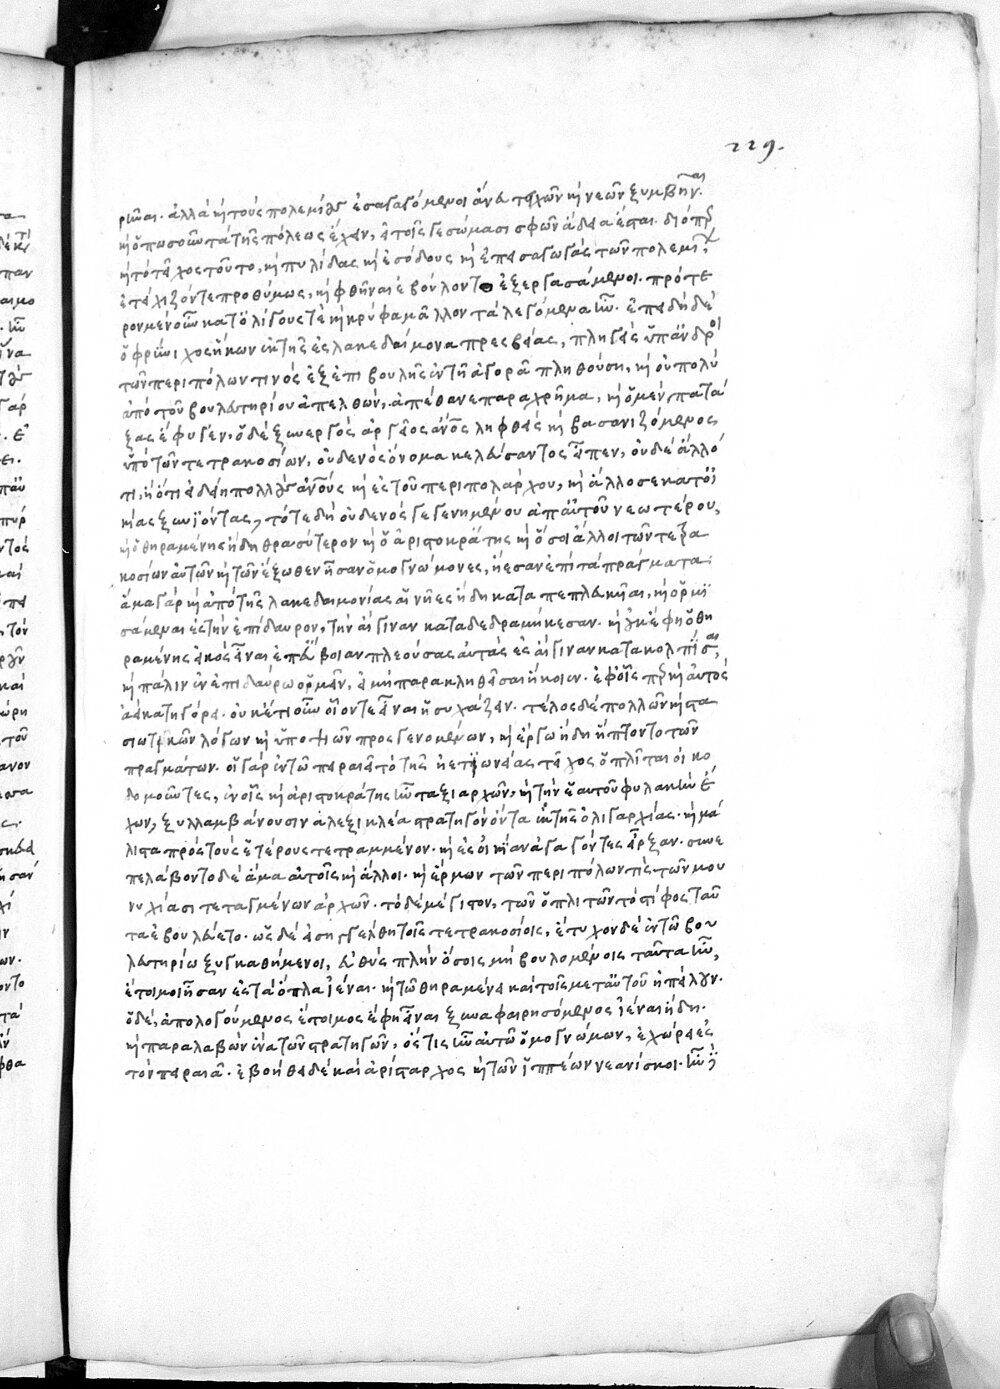 229.
ρῶναι. ἀλλὰ καὶ τοὺς πολεμίους ἐσαγαγόμενοι ἄνευ τειχῶν καὶ νεῶν ξυμβῆναι.
καὶ ὁπωσοῦν τὰ τῆς πόλεως ἔχειν, εἰ τοῖς γε σώμασι σφῶν ἄδεια ἔσται. διόπερ
καὶ τὸ τεῖχος τοῦτο, καὶ πυλίδας καὶ ἐσόδους καὶ ἐπεσαγωγὰς τῶν πολεμίων,
ἐτείχιζόν τε προθύμως, καὶ φθῆναι ἐβούλοντο ἐξεργασάμενοι. πρότε
ρον μὲν οὖν κατ' ὀλίγους τὲ καὶ κρύφα μᾶλλον τὰ λεγόμενα ἦν. ἐπειδὴ δὲ
ὁ φρύνιχος ἥκων ἐκ τῆς ἐς λακεδαίμονα πρεσβείας, πληγεὶς ὑπ' ἀνδρὸς
τῶν περιπόλων τινὸς ἐξ ἐπιβουλῆς ἐν τῇ ἀγορᾷ πληθούσῃ, καὶ οὐ πολὺ
ἀπὸ τοῦ βουλευτηρίου ἀπελθὼν, ἀπέθανε παραχρῆμα, καὶ ὁ μὲν πατά
ξας ἔφυγεν, ὁ δὲ ξυνεργὸς ἀργεῖος ἄνθρωπος ληφθεὶς καὶ βασανιζόμενος
ὑπὸ τῶν τετρακοσίων, οὐδενὸς ὄνομα κελεύσαντος εἶπεν, οὐδὲ ἄλλό
τι, ἢ ὅτι εἰδείη πολλοὺς ἀνθρώπους καὶ ἐς τοῦ περιπολάρχου, καὶ ἄλλοσε κατ' οἰ
κίας ξυνιόντας, τότε δὴ οὐδενὸς γεγενημένου ἀπ' αὐτοῦ νεωτέρου,
καὶ ὁ θηραμένης ἤδη θρασύτερον καὶ ὁ ἀριστοκράτης καὶ ὅσοι ἄλλοι τῶν τετρα
κοσίων αὐτῶν καὶ τῶν ἔξωθεν ἦσαν ὁμογνώμονες, ᾔεσαν ἐπὶ τὰ πράγματα.
ἅμα γὰρ καὶ ἀπὸ τῆς λακεδαιμονίας αἱ νῆες ἤδη καταπεπλευκυῖαι, καὶ ὁρμι
σάμεναι ἐς τὴν ἐπίδαυρον, τὴν αἴγιναν καταδεδραμήκεσαν. καὶ οὐκ ἔφη ὁ θη
ραμένης εἰκὸς εἶναι ἐπ' εὔβοιαν πλεούσας αὐτὰς ἐς αἴγιναν κατακολπίσαι,
καὶ πάλιν ἐν ἐπιδαύρω ὁρμεῖν, εἰ μὴ παρακληθεῖσαι ἥκοιεν. ἐφ' οἷσπερ καὶ αὐτὸς
ἀεὶ κατηγόρει. οὐκέτι οὖν οἷόν τε εἶναι ἡσυχάζειν. τέλος δὲ πολλῶν καὶ στα
σιωτικῶν λόγων καὶ ὑποψιῶν προσγενομένων, καὶ ἔργω ἤδη ἥπτοντο τῶν
πραγμάτων. οἱ γὰρ ἐν τῶ πειραιεῖ τὸ τῆς ἠετιωνείας τεῖχος ὁπλῖται οἰκο
δομοῦντες, ἐν οἷς καὶ ἀριστοκράτης ἦν ταξιαρχῶν, καὶ τὴν ἑαυτοῦ φυλακὴν ἔ
χων, ξυλλαμβάνουσιν ἀλεξικλέα στρατηγὸν ὄντα ἐκ τῆς ὀλιγαρχίας. καὶ μά
λιστα πρὸς τοὺς ἑτέρους τετραμμένον. καὶ ἐς οἰκίαν ἀγαγόντες εἶρξαν. συνε
πελάβοντο δὲ ἅμα αὐτοῖς καὶ ἄλλοι. καὶ ἕρμων τῶν περιπόλων τίς τῶν μου
νυχίασι τεταγμένων ἄρχων. τὸ δὲ μέγιστον, τῶν ὁπλιτῶν τὸ στίφος ταῦ
τα ἐβουλεύετο. ὡς δὲ ἐσηγγέλθη τοῖς τετρακοσίοις, ἔτυχον δὲ ἐν τῶ βου
λευτηρίω ξυγκαθήμενοι, εὐθὺς πλὴν ὅσοις μὴ βουλομένοις ταῦτα ἦν,
ἕτοιμοι ἦσαν ἐς τὰ ὅπλα ἰέναι. καὶ τῶ θηραμένει καὶ τοῖς μετ' αὐτοῦ ἠπείλουν.
ὁ δὲ, ἀπολογούμενος ἕτοιμος ἔφη εἶναι ξυναφαιρησόμενος ἰέναι ἤδη.
καὶ παραλαβὼν ἕνα τῶν στρατηγῶν, ὅς τις ἦν αὐτῶ ὁμογνώμων, ἐχώρει ἐς
τὸν πειραιᾶ. ἐβοήθει δὲ καὶ ἀρίσταρχος καὶ τῶν ἱππέων νεανίσκοι. ἦν